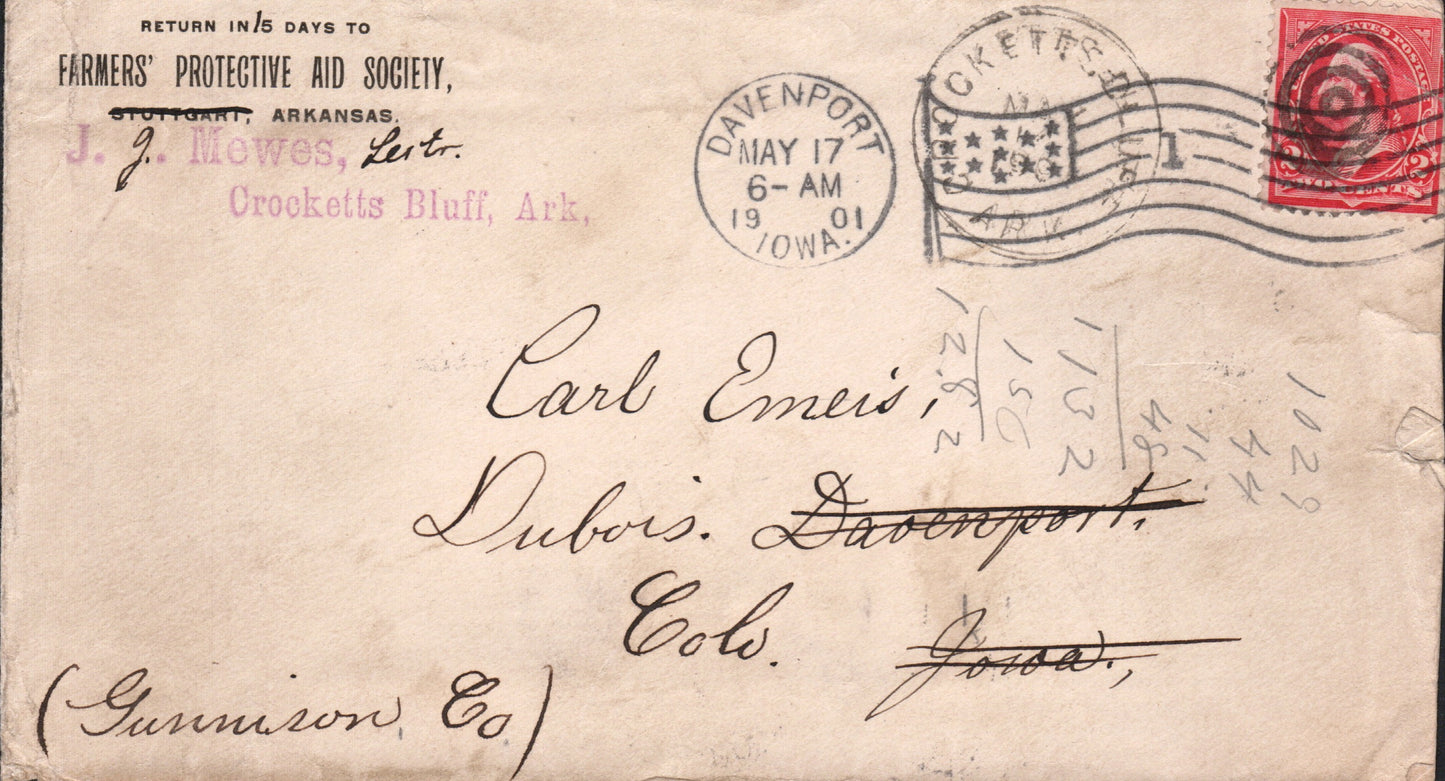 RETURN IN 15 DAYS TO
FARMERS' PROTECTIVE AID SOCIETY,
STUTTGART, ARKANSAS.
J. J. Mewes,
Crocketts Bluff, Ark,
DAVENPORT
MAY 17
6-AM
19 01
IOWA.
CROCKETTS BLUFF
MAY
ARK
1
UNITED STATES POSTAGE
2 TWO CENTS 2
Carl Emeis,
Dubois. Davenport,
Colo. Iowa.,
(Gunnison, Co)
1029
44
1132
150
1282